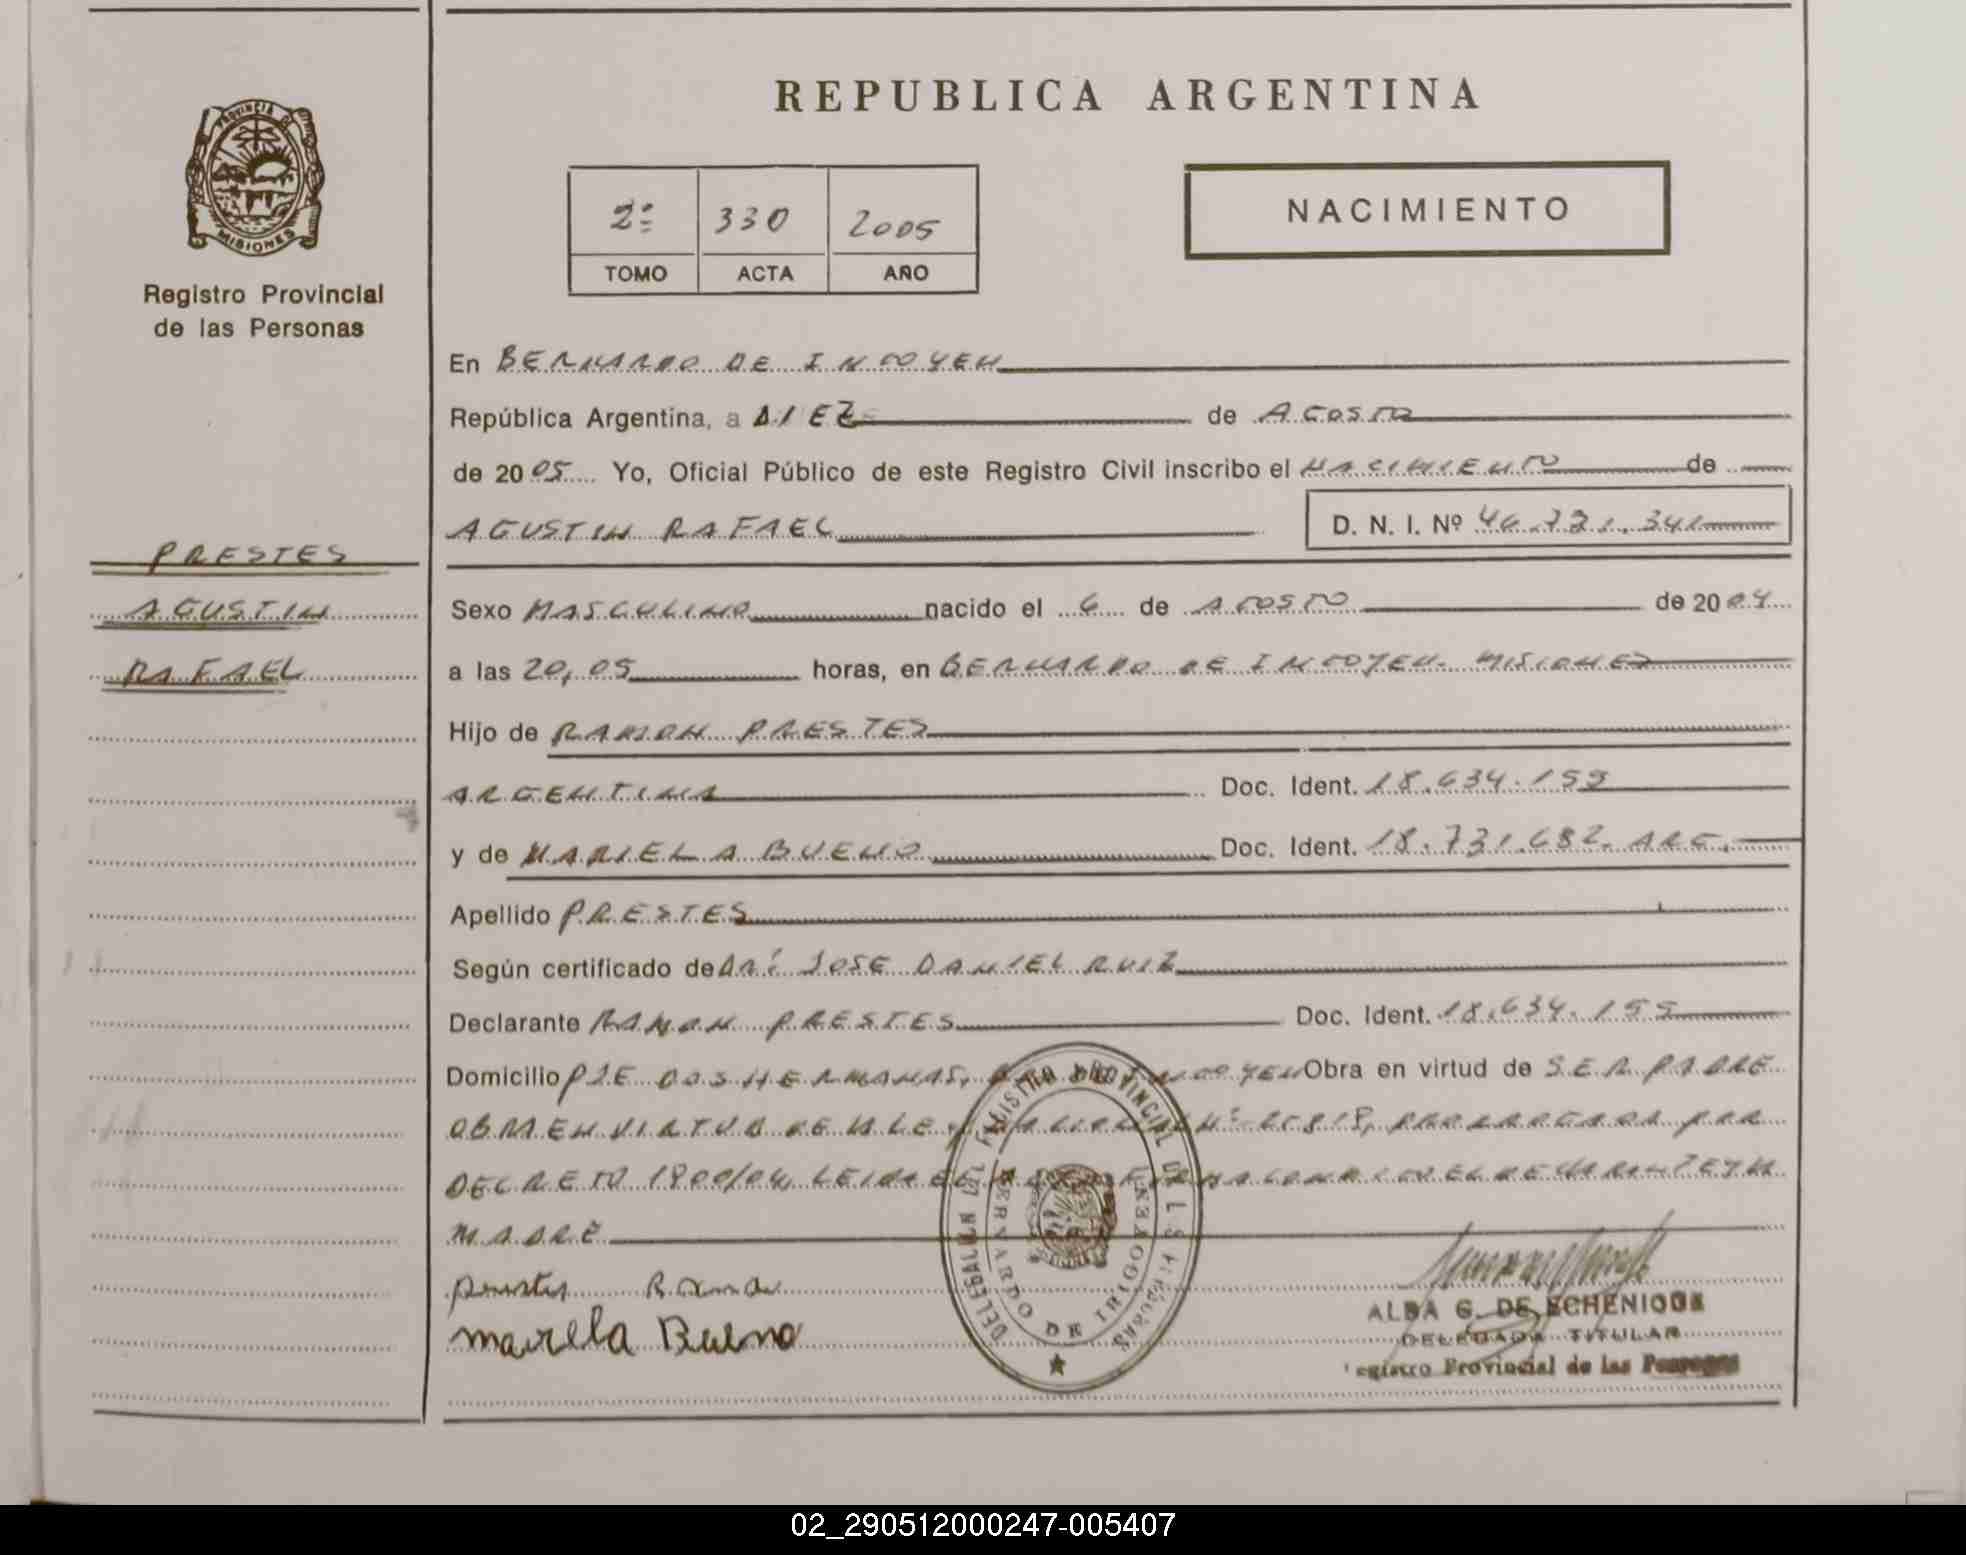 REPUBLICA ARGENTINA
PROVINCIA DE MISIONES
Registro Provincial
de las Personas
2º 330 2005
TOMO ACTA AÑO
NACIMIENTO
En BERNARDO DE IRIGOYEN
República Argentina, a DIEZ de AGOSTO
de 2005 Yo, Oficial Público de este Registro Civil inscribo el NACIMIENTO de
AGUSTIN RAFAEL D. N. I. Nº 46.721.341
PRESTES
AGUSTIN
RAFAEL
Sexo MASCULINO nacido el 6 de AGOSTO de 2004
a las 20,05 horas, en BERNARDO DE IRIGOYEN. MISIONES
Hijo de RAMON PRESTES
ARGENTINA Doc. Ident. 18.634.155
y de MARIELA BUENO Doc. Ident. 18.731.682. ARG.
Apellido PRESTES
Según certificado de DR: JOSE DANIEL RUIZ
Declarante RAMON PRESTES Doc. Ident. 18.634.155
Domicilio PJE DOS HERMANAS, IRIGOYEN Obra en virtud de SER PADRE
OBRA EN VIRTUD DE LA LEY NACIONAL Nº 25818, PRORROGADA POR
DECRETO 1800/04, LEIDA EL ACTA FIRMA CONMIGO EL DECLARANTE Y LA
MADRE
Prestes Ramon
Mariela Bueno
DELEGACION DEL REGISTRO PROVINCIAL DE LAS PERSONAS
BERNARDO DE IRIGOYEN
ALBA G. DE ECHENIQUE
DELEGADA TITULAR
Registro Provincial de las Personas
02_290512000247-005407